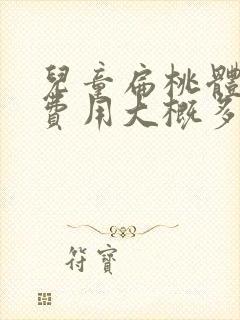 兒童扁桃體
費用大概多
符寶